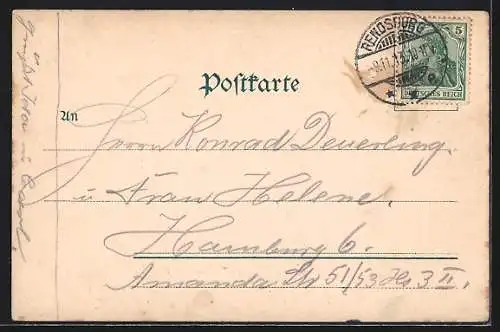 Postkarte
RENDSBURG
5
DEUTSCHES REICH
An
Herrn Konrad Deuerling.
u Frau Helene.
Hamburg 6.
Amanda Str 51/53 Hs 3 II.